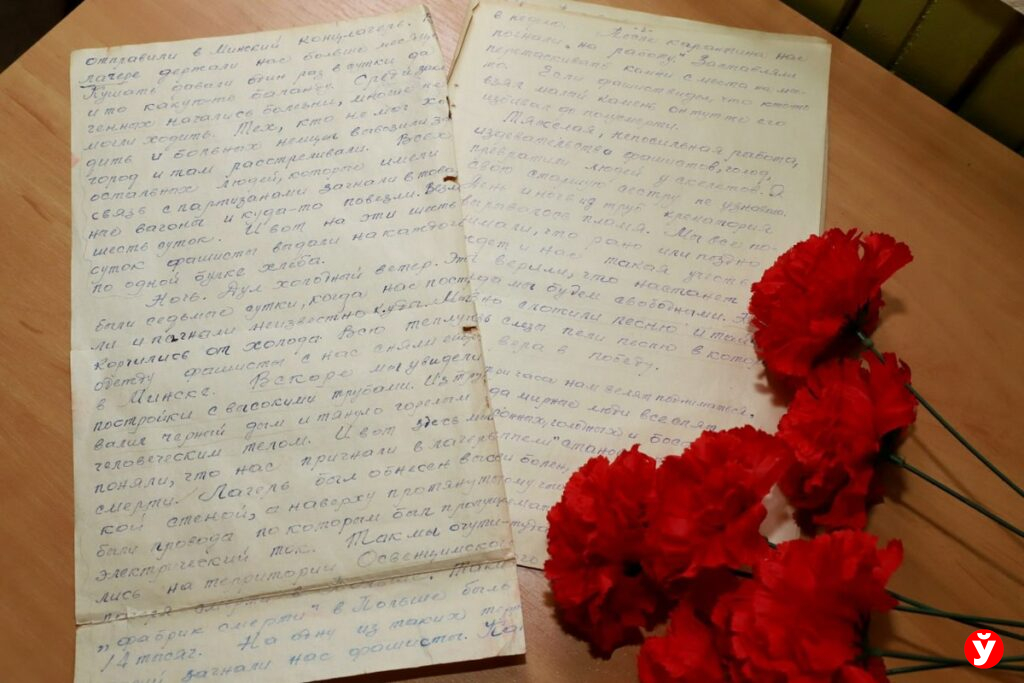 отправили в Минский концлагерь. В
лагере держали нас больше месяца
Кушать давали один раз в сутки, да
и то какую-то баланду. Среди заклю-
ченных начались болезни, многие не
могли ходить. Тех, кто не мог хо-
дить и больных немцы вывозили за
город и там расстреливали. Всех
остальных людей, которые имели
связь с партизанами загнали в това
ные вагоны и куда-то повезли. Везли
шесть суток. И вот на эти шесть
суток фашисты выдали на каждого
по одной булке хлеба.
Ночь. Дул холодный ветер. Это
были седьмые сутки, когда нас пост
ли и пагнали неизвестно куда. М
корчились от холода. Всю теплую
одежду фашисты с нас сняли ещё
в Минске. Вскоре мы увидели
постройки с высокими трубами. Из тру
валил черный дым и тянуло горелым
человеческим телом. И вот здесь мы
поняли, что нас пригнали в лагерь
смерти. Лагерь был обнесен высо
кой стеной, а наверху протянуты
были провода по которым был пропущен
электрический ток. Так мы очути-
лись на территории Освенцимского
лагеря смерти в Польше. Таки
„фабрик смерти" в Польше было
14 тысяч. На одну из таких терр
загнали нас фашисты. Ка
в неделю.
После карантина нас
погнали „на работу". Заставляли
перетаскивать камни с места на ме-
то. Если фашист видел, что кто-то
взял малый камень он тут же его
избивал до полусмерти.
Тяжелая, непосильная работа,
издевательства фашистов, голод,
превратили людей у скелетов. Я
свою старшую сестру не узнавала.
День и ночь из труб крематория
вырывалось пламя. Мы все по-
нимали, что рано или поздно
ждет и нас такая участь
верили, что настанет
да мы будем свободными.
сложили песню и тай
слёз пели песню в кото
вера в победу.
три часа нам велят подниматься.
да мирные люди все спят
голодных и бос
болен,